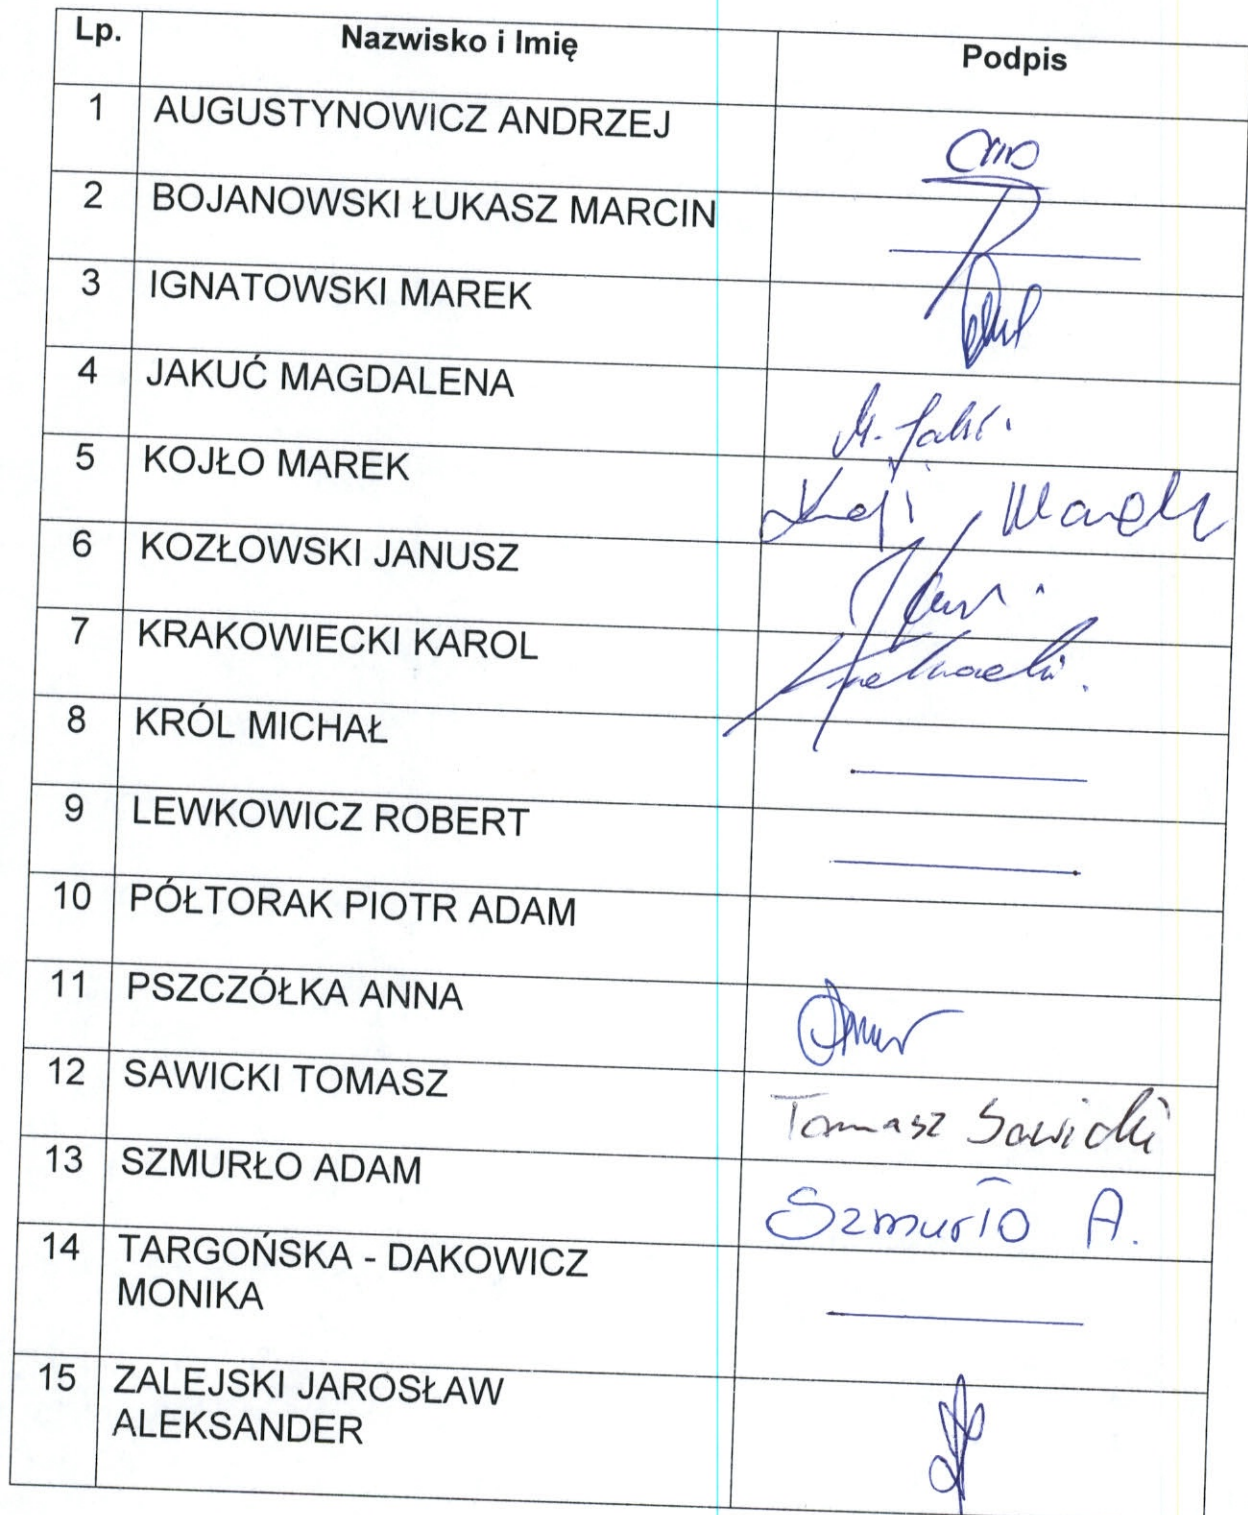 Lp. Nazwisko i Imię Podpis
1 AUGUSTYNOWICZ ANDRZEJ
2 BOJANOWSKI ŁUKASZ MARCIN
3 IGNATOWSKI MAREK
4 JAKUĆ MAGDALENA
5 KOJŁO MAREK Marek
6 KOZŁOWSKI JANUSZ
7 KRAKOWIECKI KAROL
8 KRÓL MICHAŁ
9 LEWKOWICZ ROBERT
10 PÓŁTORAK PIOTR ADAM
11 PSZCZÓŁKA ANNA
12 SAWICKI TOMASZ Tomasz Sawicki
13 SZMURŁO ADAM Szmurło A.
14 TARGOŃSKA - DAKOWICZ
MONIKA
15 ZALEJSKI JAROSŁAW
ALEKSANDER